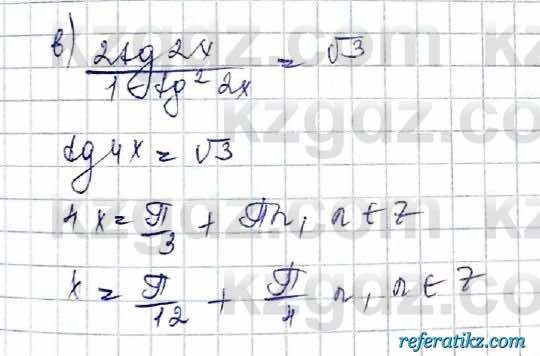 в) 2tg 2x / 1 - tg² 2x = √3
tg 4x = √3
4x = π/3 + πn, n ∈ Z
x = π/12 + π/4 n, n ∈ Z
kzgdz.com
referatikz.com